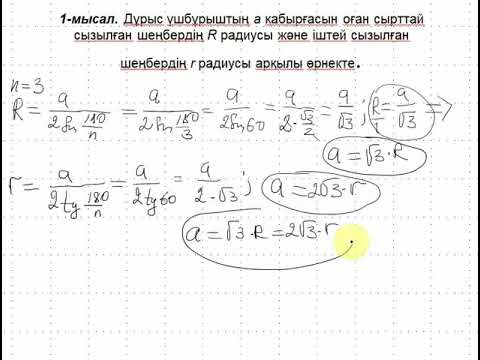 1-мысал. Дұрыс үшбұрыштың a қабырғасын оған сырттай
сызылған шеңбердің R радиусы және іштей сызылған
шеңбердің r радиусы арқылы өрнекте.
n=3
R = a/(2sin 180/n) = a/(2sin 180/3) = a/(2sin60) = a/(2·√3/2) = a/√3 ; R/1 = a/√3 →
a = √3·R
r = a/(2tg 180/n) = a/(2tg60) = a/(2·√3) ; a = 2√3·r
a = √3·R = 2√3·r